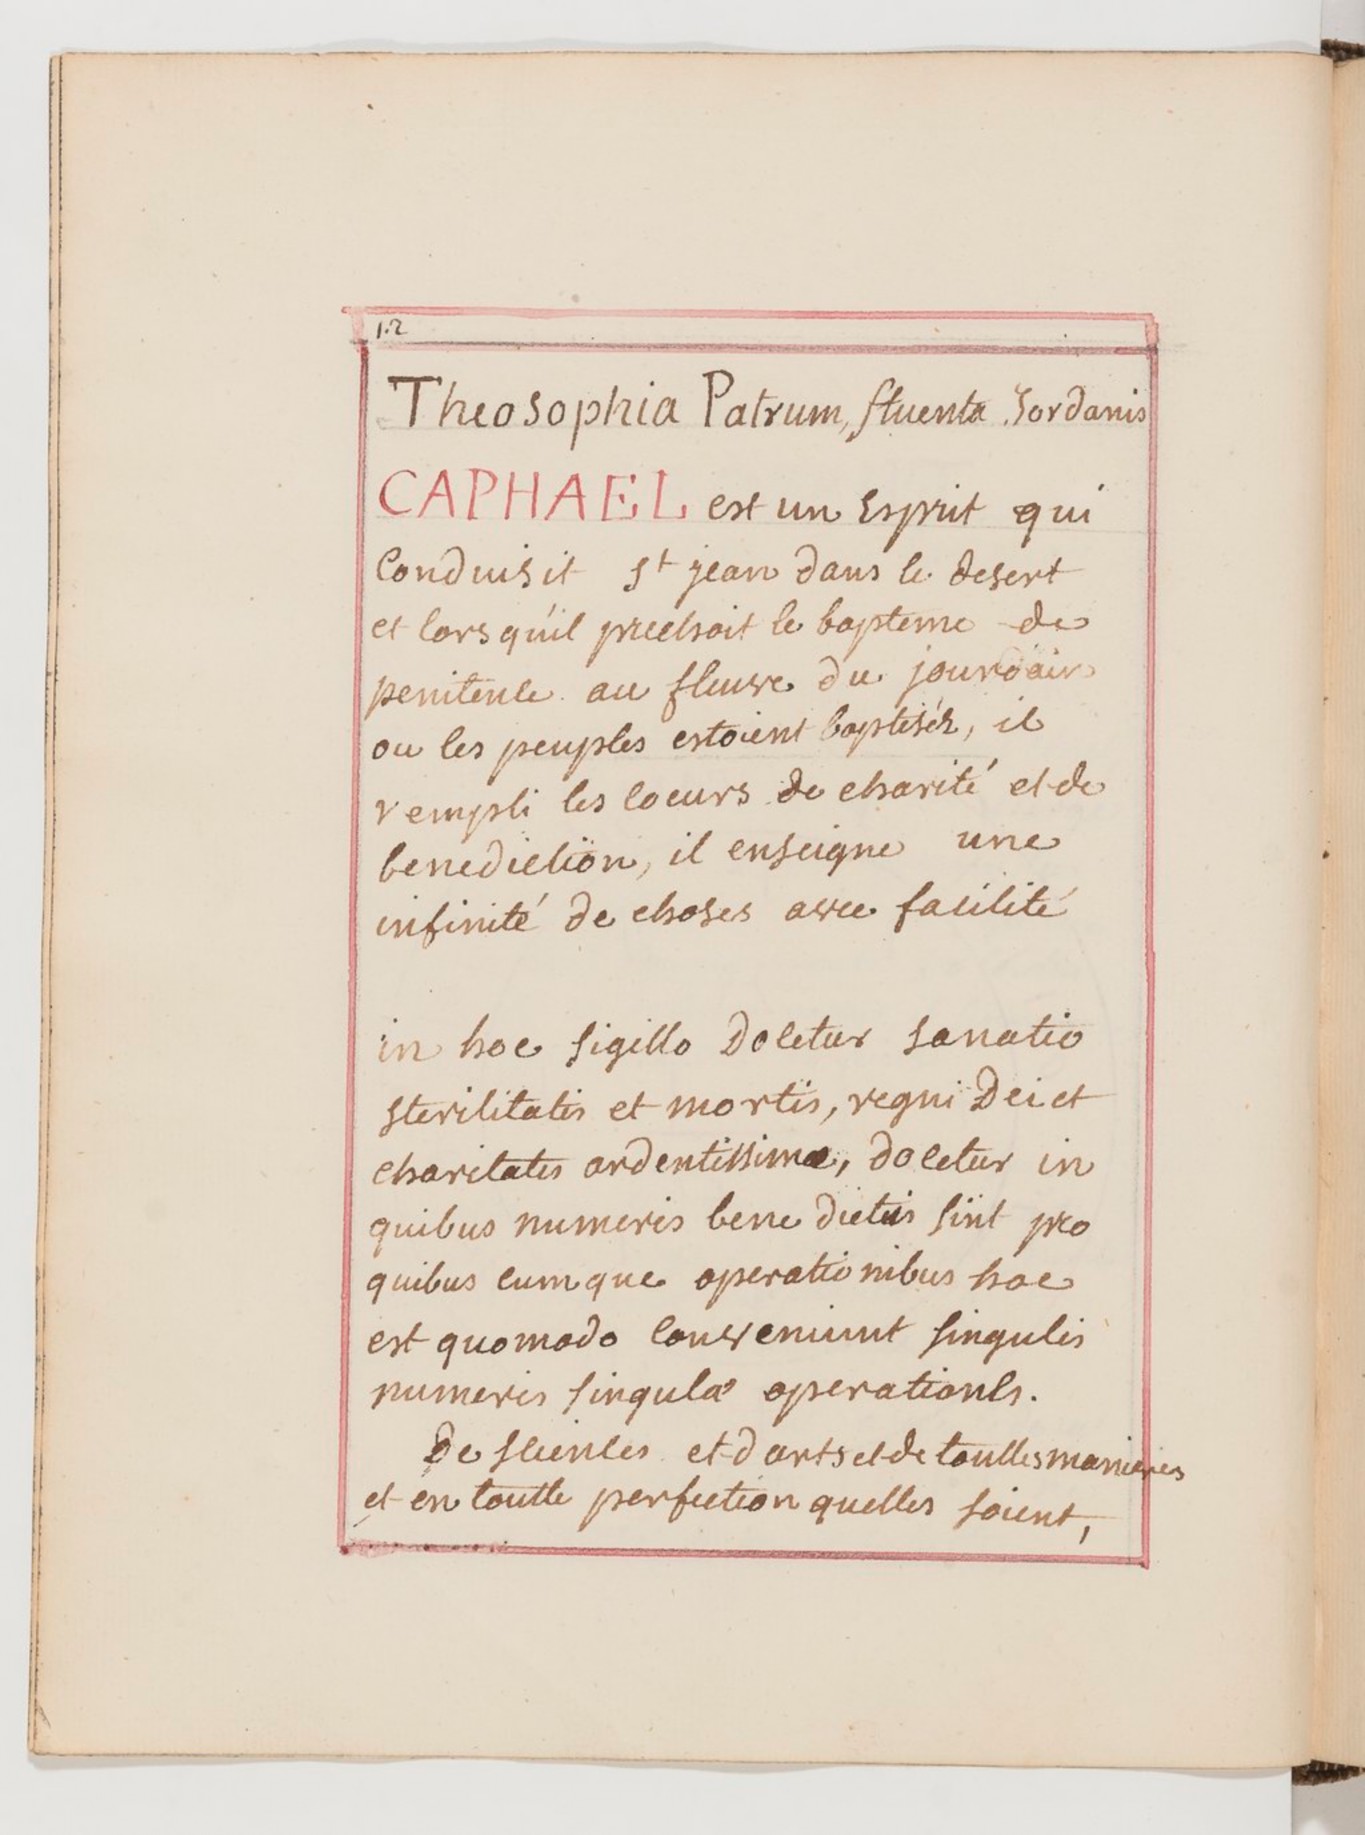 12
Theosophia Patrum, fluenta Jordanis
CAPHAEL est un Esprit qui
Conduisit St jean dans le desert
et lorsqu'il prechoit le bapteme de
penitence au fleuve du jourdain
ou les peuples estoient baptisés, il
rempli les coeurs de charité et de
benediction, il enseigne une
infinité de choses avec facilité
in hoc sigillo Docetur sanatio
sterilitatis et mortis, regni Dei et
charitatis ardentissimæ, docetur in
quibus numeris bene dictis sint pro
quibus cumque operationibus hoc
est quomodo conveniunt singulis
numeris singulæ operationes.
De sciences et d'arts et de touttes manieres
et en toutte perfection quelles soient,